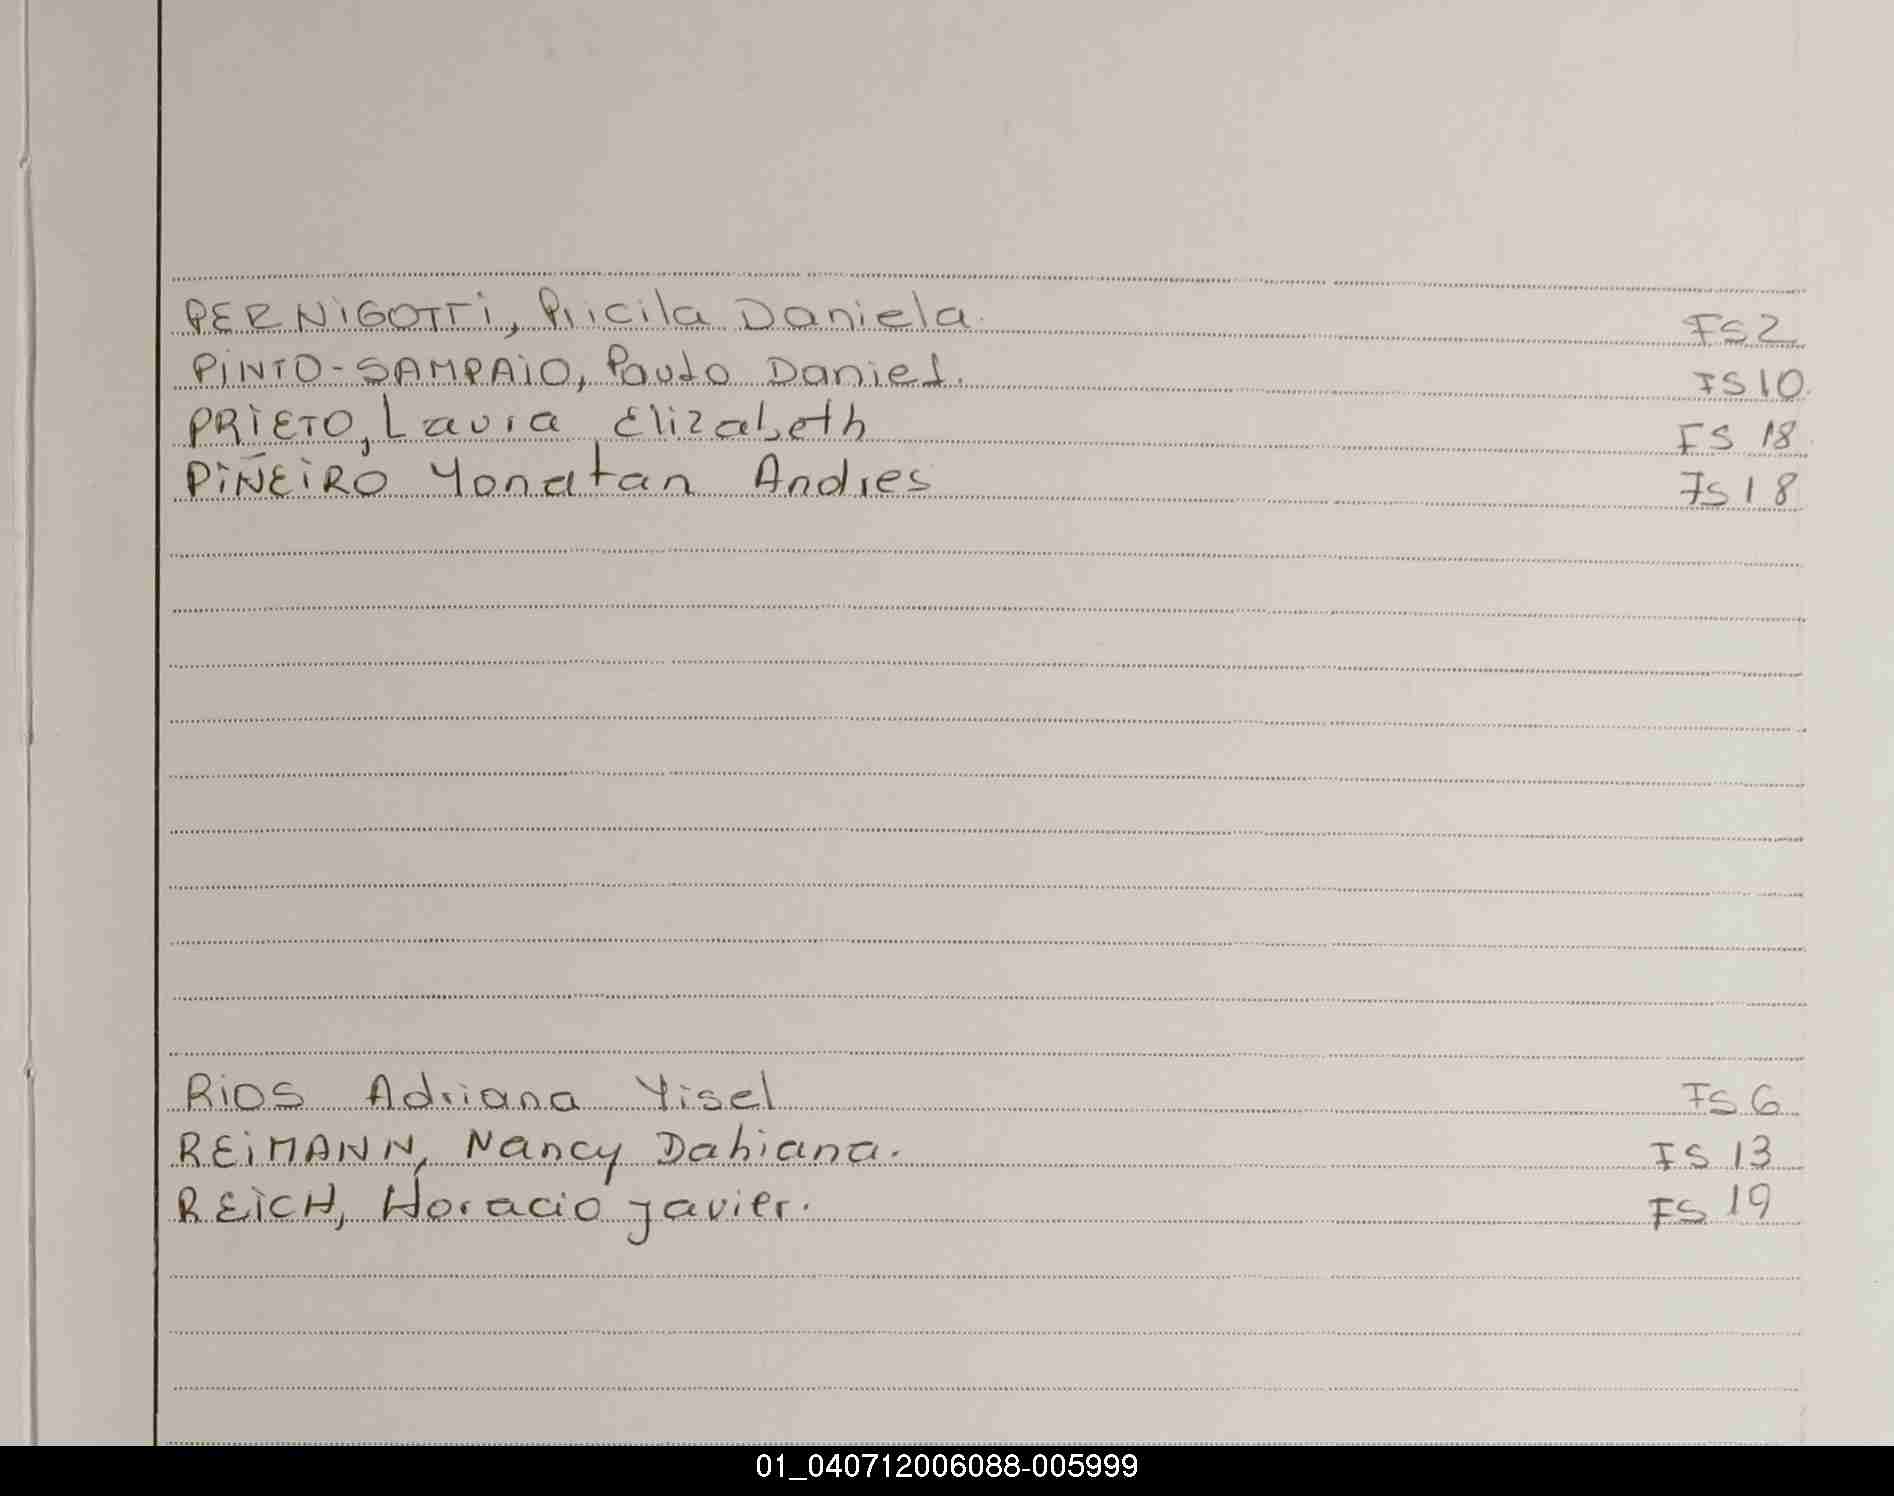 PERNIGOTTI, Pricila Daniela. FS 2
PINTO-SAMPAIO, Paulo Daniel. FS 10.
PRIETO, Laura Elizabeth FS 18.
PIÑEIRO Yonatan Andres FS 18
RIOS Adriana Yisel FS 6
REIMANN, Nancy Dahiana. FS 13
REICH, Horacio Javier. FS 19
01_040712006088-005999